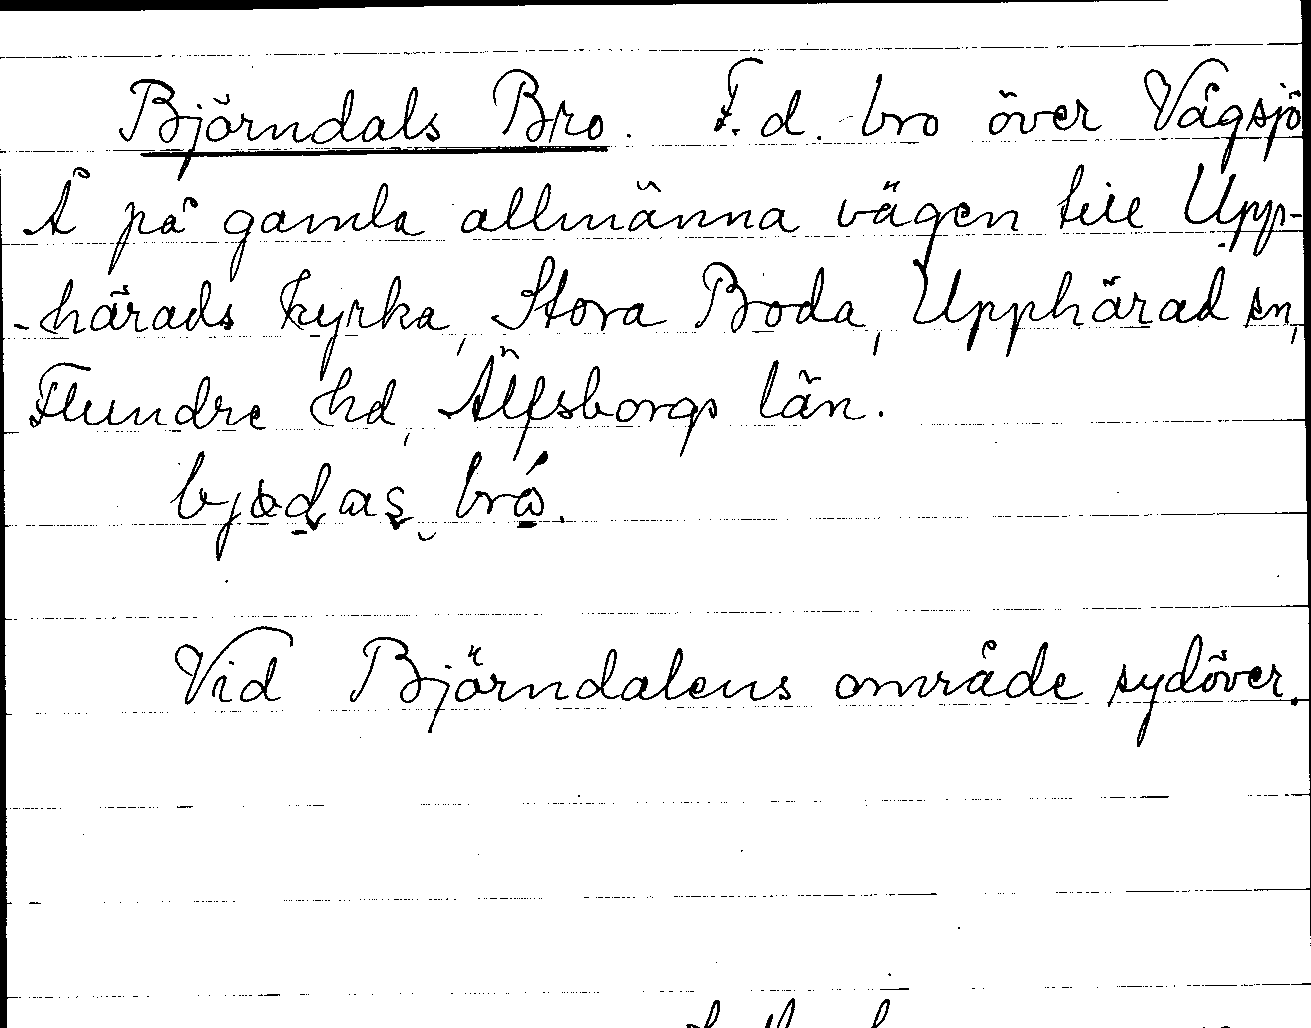 Björndals Bro. F.d. bro över Vågsjö
Å på gamla allmänna vägen till Upp-
-härads kyrka, Stora Boda, Upphärad sn,
Flundre hd, Älfsborgs län.
Vid Björndalens område sydöver.